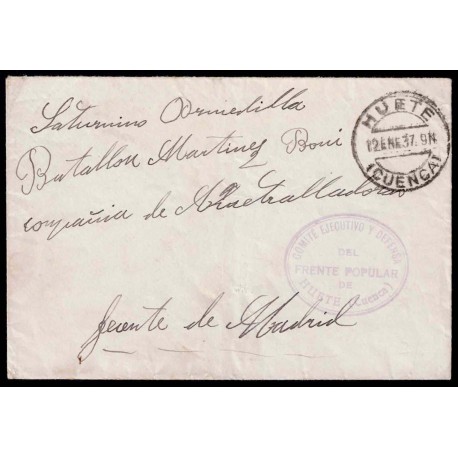 HUETE
12 ENE 37. 9N
(CUENCA)
Saturnino Ormedilla
Batallon Martinez Boni
compañia de Ametralladoras
COMITE EJECUTIVO Y DEFENSA
DEL
FRENTE POPULAR
DE
HUETE (Cuenca)
frente de Madrid